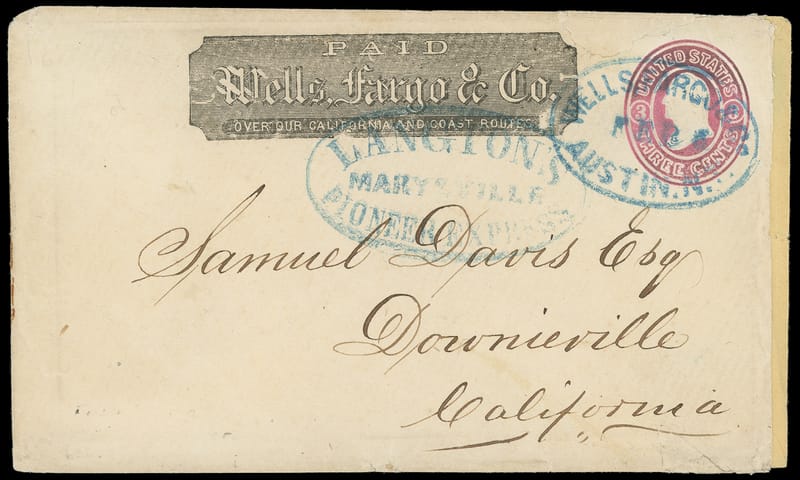 PAID
Wells, Fargo & Co.
OVER OUR CALIFORNIA AND COAST ROUTES.
UNITED STATES
THREE CENTS
3 3
WELLS FARGO & Co
AUSTIN. N.T.
LANGTON'S
MARYSVILLE
PIONEER EXPRESS
Samuel Davis Esq
Downieville
California